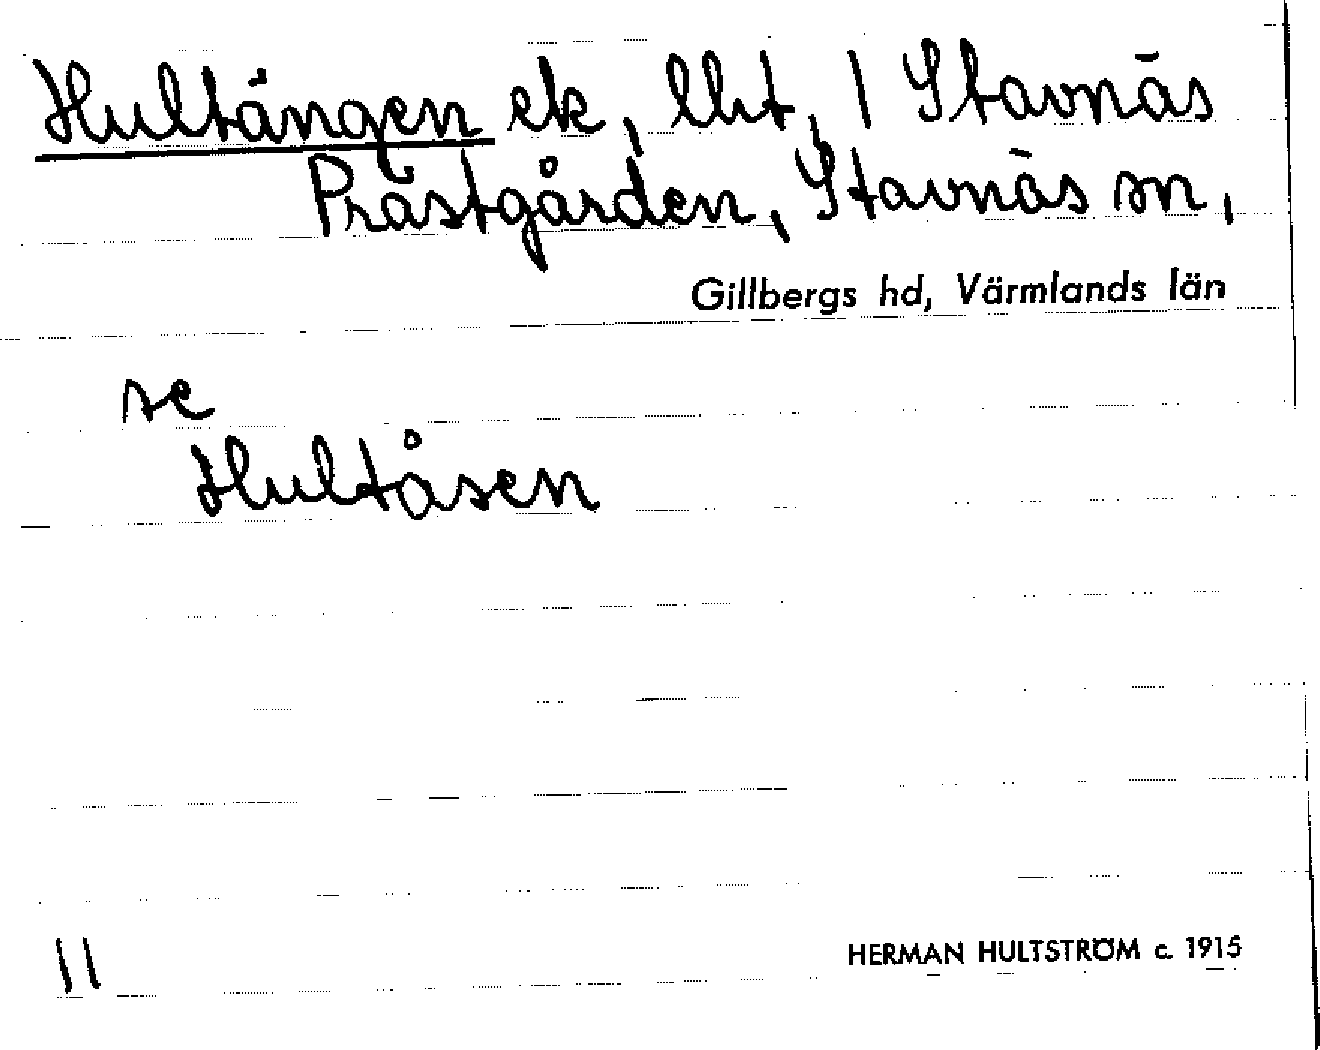 Hultängen ek, lht, 1 Stavnäs
Prästgården, Stavnäs sn,
Gillbergs hd, Värmlands län
se
Hultåsen
11
HERMAN HULTSTRÖM c. 1915